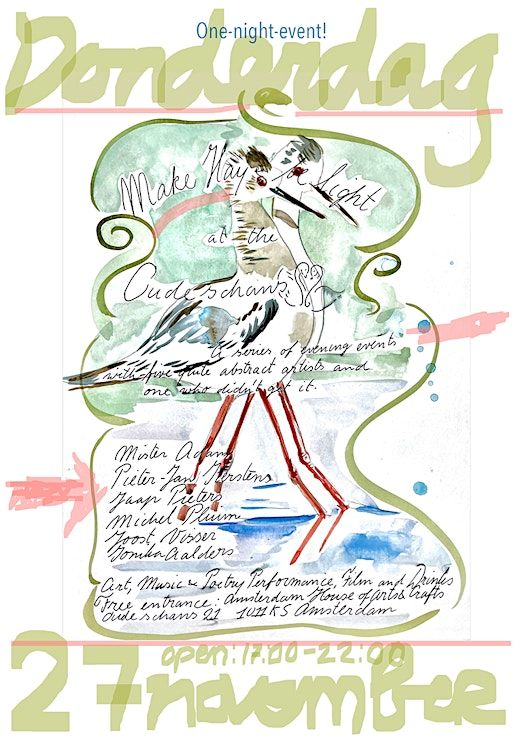 One-night-event!
Donderdag
Make Way for Light
at the
Oudeschans
A series of evening events
with five quite abstract artists and
one who didn't get it.
Mister Adam
Pieter-Jan Kerstens
Jaap Pieters
Michel Pluim
Joost Visser
Tonika Aalders
Art, Music & Poetry Performance, Film and Drinks
Free entrance: Amsterdam House of Arts & Crafts
Oude schans 21 1011 KS Amsterdam
open: 17.00-22:00
27 november